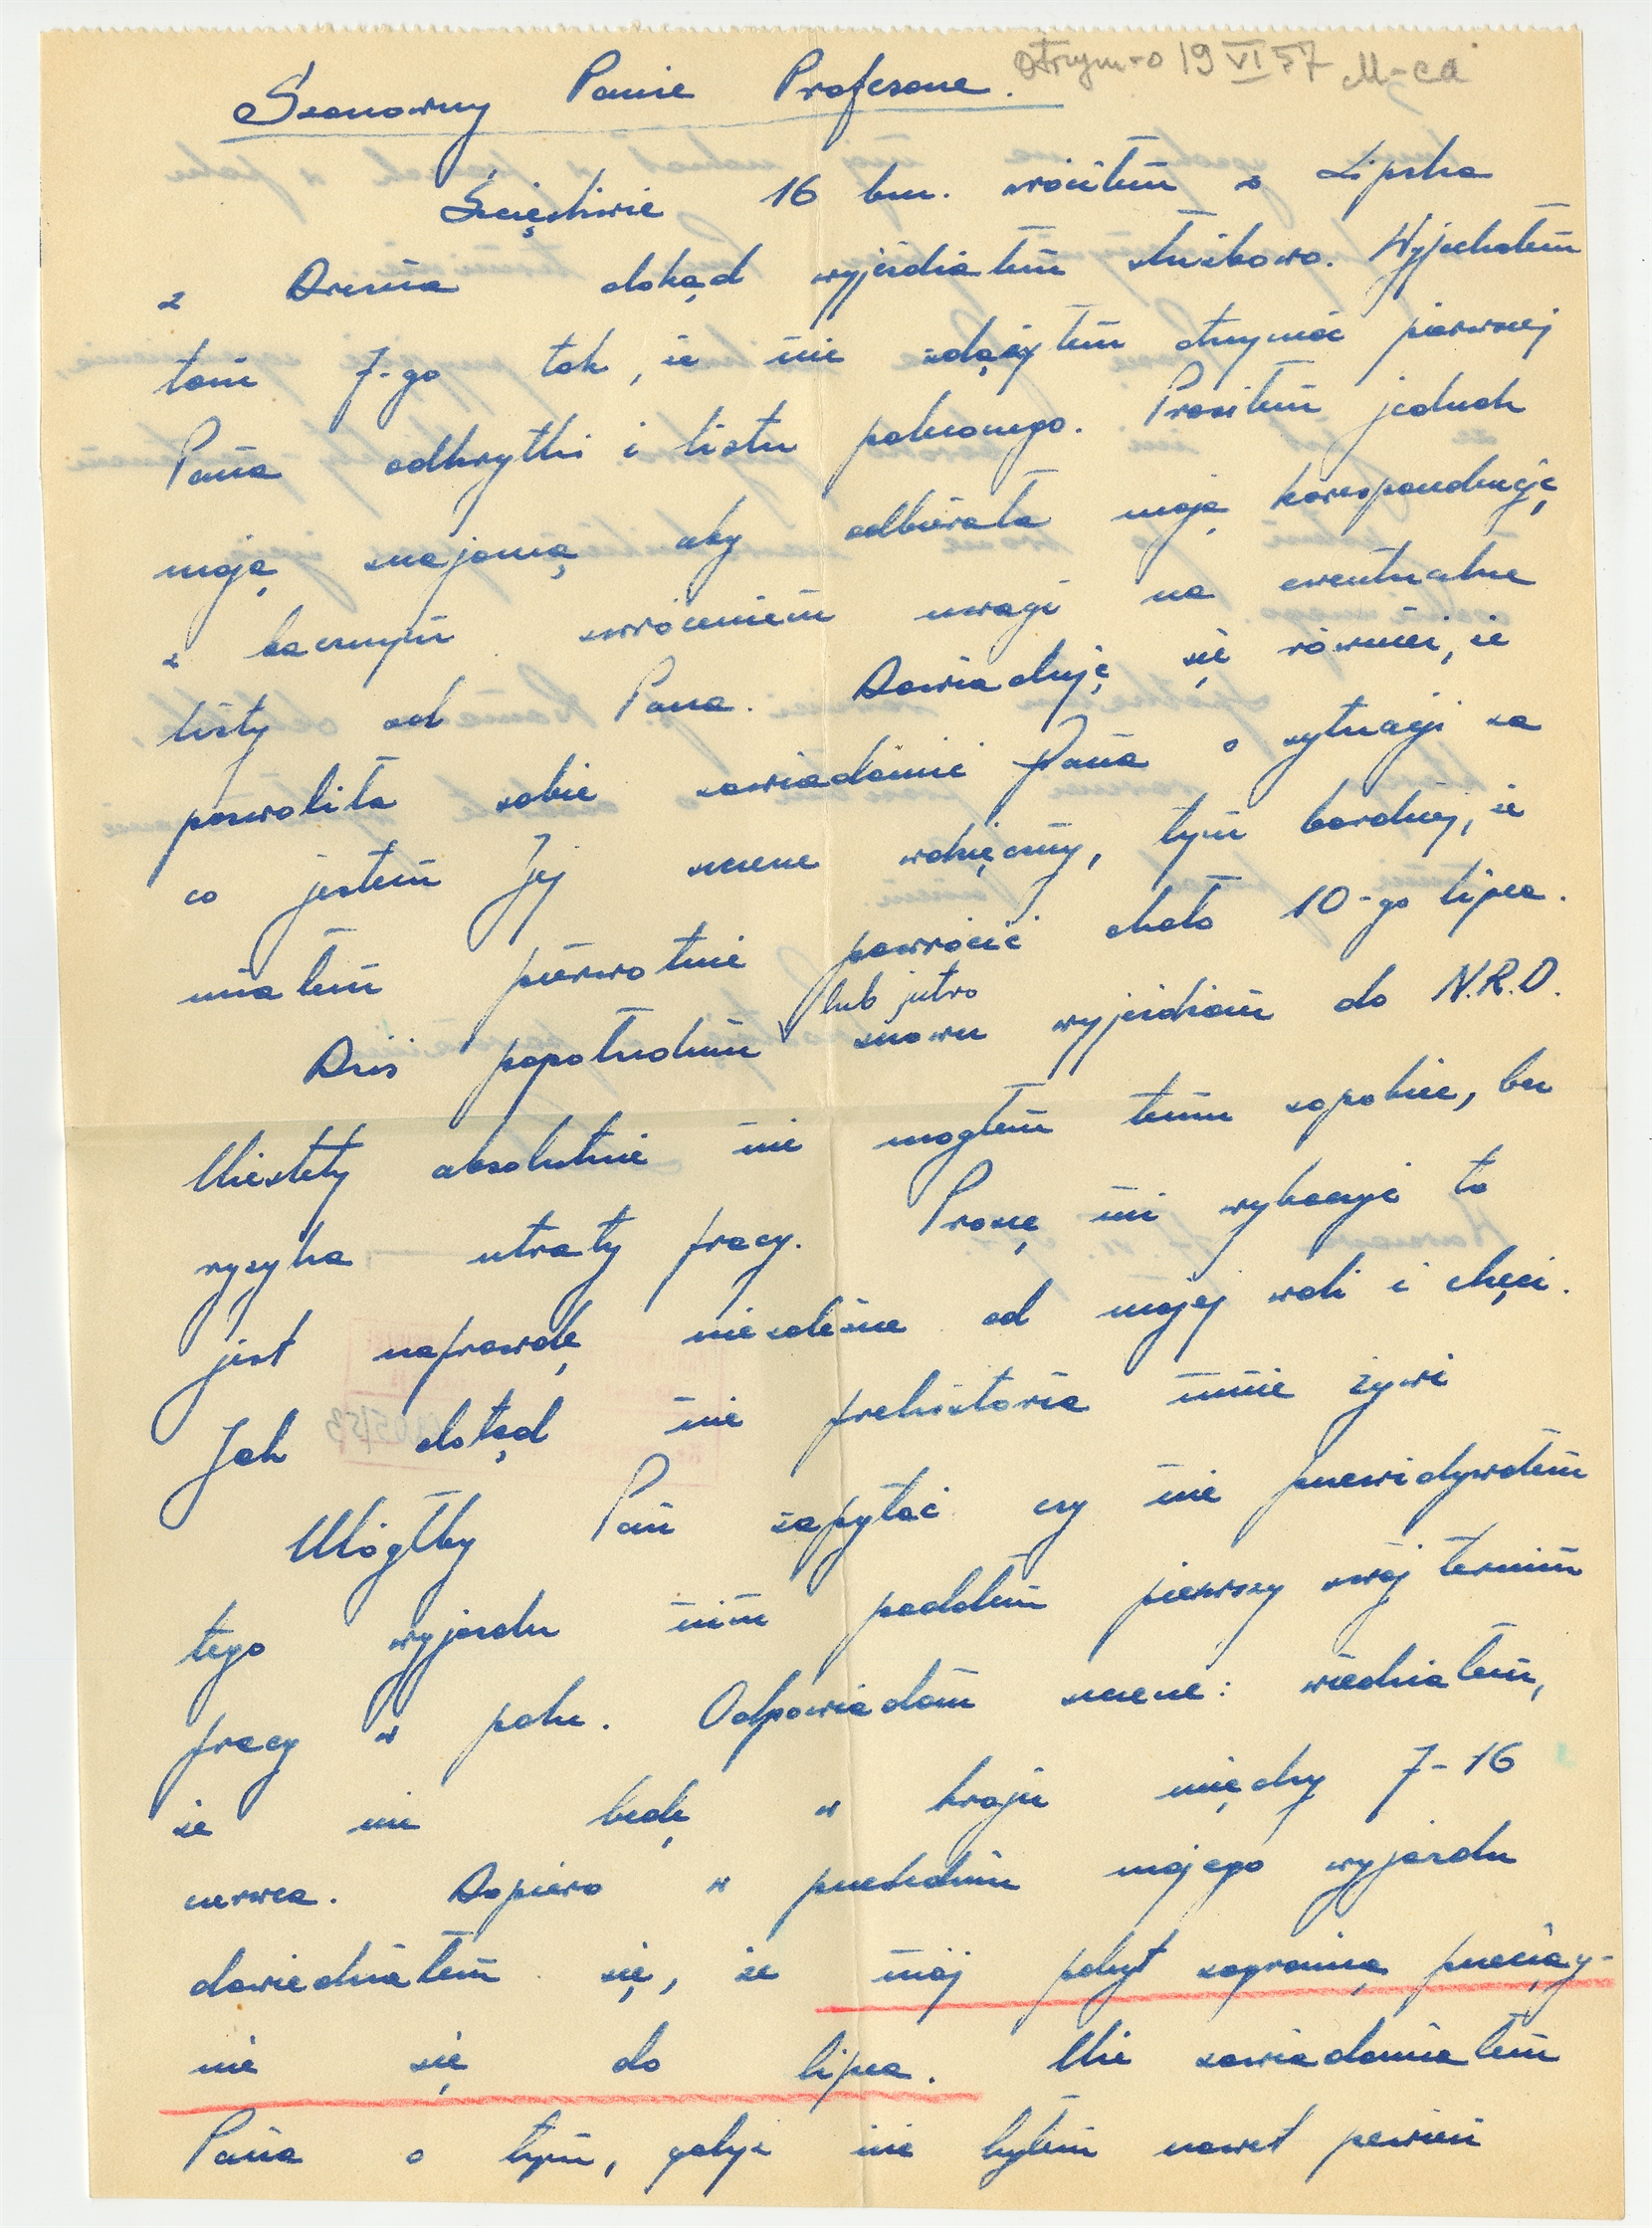 Otrzym-o 19 VI 57 M-ca
Szanowny Panie Profesorze.
Szczęśliwie 16 bm. wróciłem z Lipska
z Drezna dokąd wyjeżdżałem służbowo. Wyjechałem
tam 7-go tak, że nie zdążyłem otrzymać pierwszej
Pana odkrytki i listu poleconego. Prosiłem jednak
moją znajomą aby odbierała moją korespondencję
z bacznym zwróceniem uwagi na ewentualne
listy od Pana. Dowiaduję się również, że
pozwoliła sobie zawiadomić Pana o sytuacji za
co jestem Jej szczerze wdzięczny, tym bardziej, że
miałem pierwotnie powrócić około 10-go lipca.
Dziś popołudniu lub jutro znowu wyjeżdżam do N.R.D.
Niestety absolutnie nie mogłem temu zapobiec, bez
ryzyka utraty pracy. Proszę mi wybaczyć to
jest naprawdę niezależne od mojej woli i chęci.
Jak dotąd nie prehistoria mnie żywi
Mógłby Pan zapytać czy nie przewidywałem
tego wyjazdu nim podałem pierwszy swój termin
pracy w polu. Odpowiadam szczerze: wiedziałem,
że nie będę w kraju między 7-16
czerwca. Dopiero w przeddzień mojego wyjazdu
dowiedziałem się, że mój pobyt zagranicą przeciąg-
nie się do lipca. Nie zawiadomiałem
Pana o tym, gdyż nie byłem nawet pewien